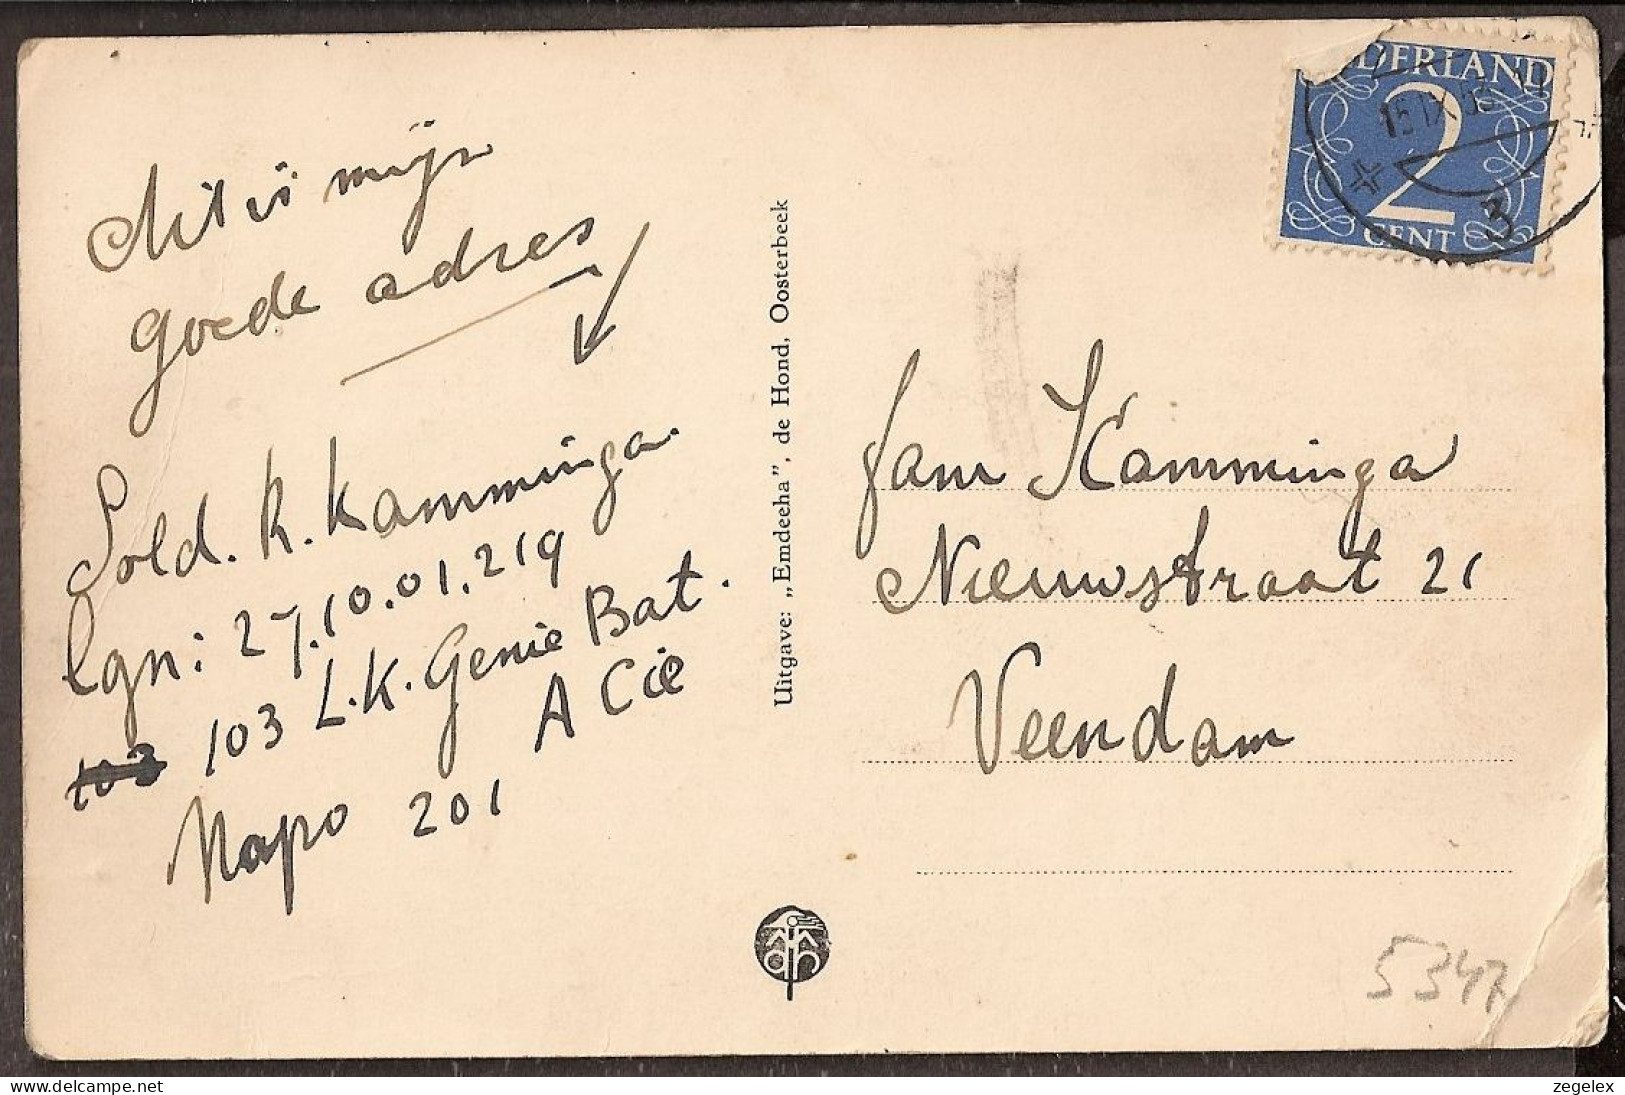 Dit is mijn
goede adres
Sold. R. Kamminga.
lgn: 27.10.01.219
103 103 L.K. Genie Bat.
A Cie
Napo 201
Uitgave: „Emdeeha”, de Hond, Oosterbeek
NEDERLAND
2
CENT
15 IX 53
3
fam Kamminga
Nieuwstraat 21
Veendam
5347
delcampe.net
zegelex